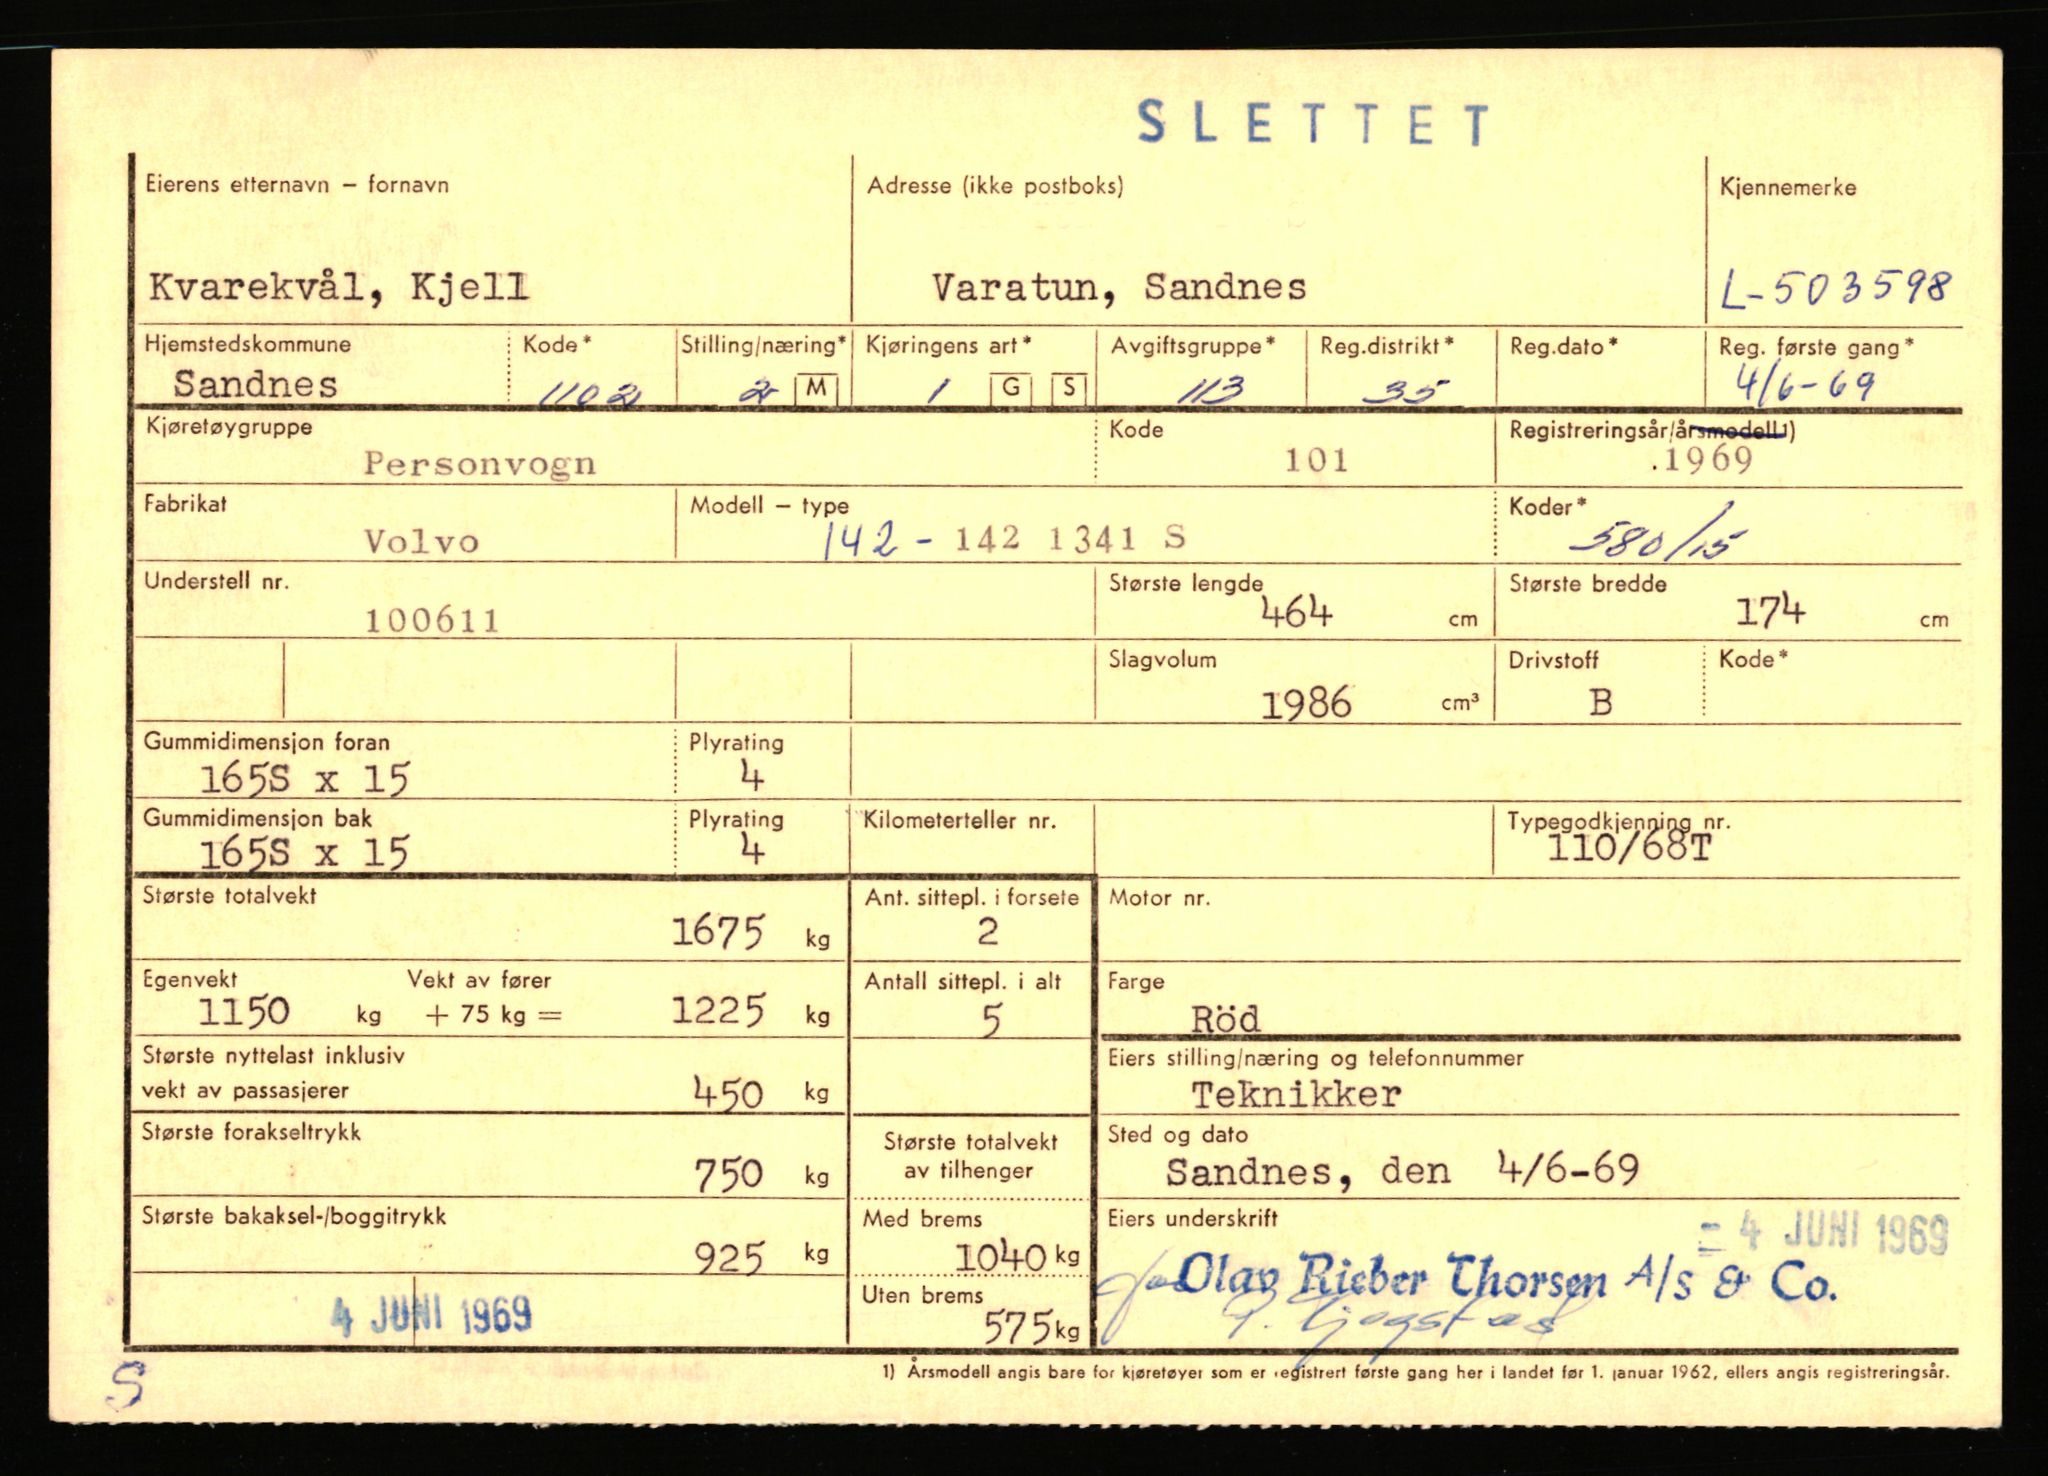 SLETTET
Eierens etternavn – fornavn Adresse (ikke postboks) Kjennemerke
Kvarekvål, Kjell Varatun, Sandnes L-503598
Hjemstedskommune Kode* Stilling/næring* Kjøringens art* Avgiftsgruppe* Reg.distrikt* Reg.dato* Reg. første gang*
Sandnes 1102 2 M 1 G S 113 35 4/6-69
Kjøretøygruppe Kode Registreringsår/årsmodell1)
Personvogn 101 .1969
Fabrikat Modell – type Koder*
Volvo 142 - 142 1341 S 580/15
Understell nr. Største lengde Største bredde
100611 464 cm 174 cm
Slagvolum Drivstoff Kode*
1986 cm³ B
Gummidimensjon foran Plyrating
165S x 15 4
Gummidimensjon bak Plyrating Kilometerteller nr. Typegodkjenning nr.
165S x 15 4 110/68T
Største totalvekt Ant. sittepl. i forsete Motor nr.
1675 kg 2
Egenvekt Vekt av fører Antall sittepl. i alt Farge
1150 kg + 75 kg = 1225 kg 5 Röd
Største nyttelast inklusiv Eiers stilling/næring og telefonnummer
vekt av passasjerer 450 kg Teknikker
Største forakseltrykk Største totalvekt Sted og dato
750 kg av tilhenger Sandnes, den 4/6-69
Største bakaksel-/boggitrykk Med brems Eiers underskrift
925 kg 1040 kg - 4 JUNI 1969
Olav Rieber Thorsen A/S & Co.
4 JUNI 1969 Uten brems
575 kg
S
1) Årsmodell angis bare for kjøretøyer som er registrert første gang her i landet før 1. januar 1962, ellers angis registreringsår.